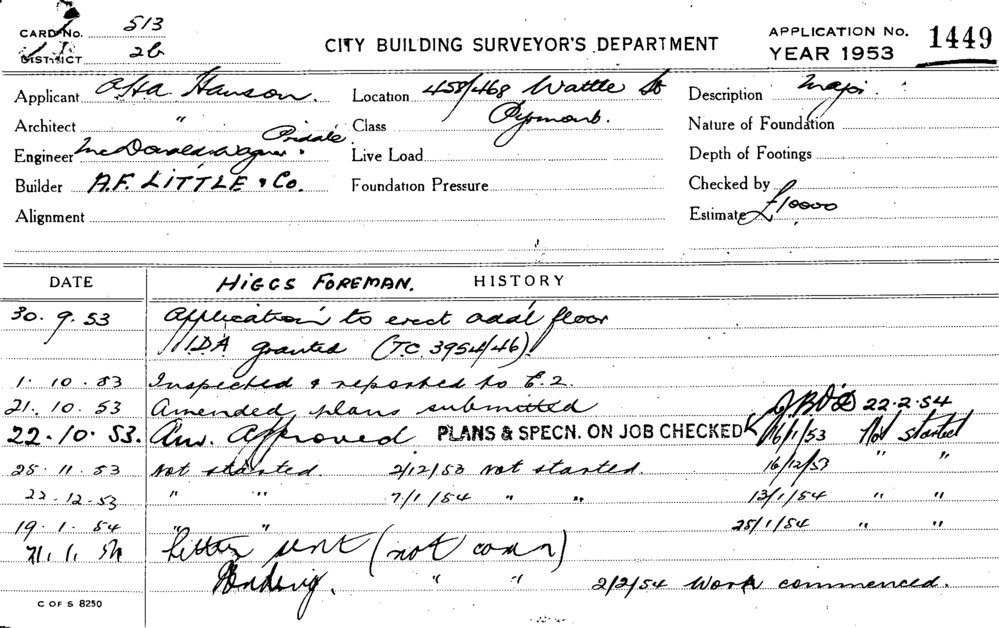 CARD No. 513
DISTRICT 26
CITY BUILDING SURVEYOR'S DEPARTMENT
APPLICATION No. 1449
YEAR 1953
Applicant Hanson.
Location 458/468 Wattle St
Pyrmont.
Description
Architect "
Class
Nature of Foundation
Engineer McDonald Wagner Priddle
Live Load
Depth of Footings
Builder A.F. LITTLE & Co.
Foundation Pressure
Checked by
Alignment
Estimate £10000
DATE
HIGGS FOREMAN. HISTORY
30. 9. 53 Application to erect addl floor
I.D.A granted (T.C. 3954/46)
1. 10. 53 Inspected & reported to E.2.
21. 10. 53 Amended plans submitted 22.2.54
22.10.53. Approved PLANS & SPECN. ON JOB CHECKED 16/1/53 Not started
25. 11. 53 Not started 2/12/53 Not started. 16/12/53 " "
22.12.53 " " 7/1/54 " " 13/1/54 " "
19. 1. 54 " " 25/1/54 " "
Letter sent (not comm)
Pending. " " 2/2/54 Work commenced.
C OF S 8250